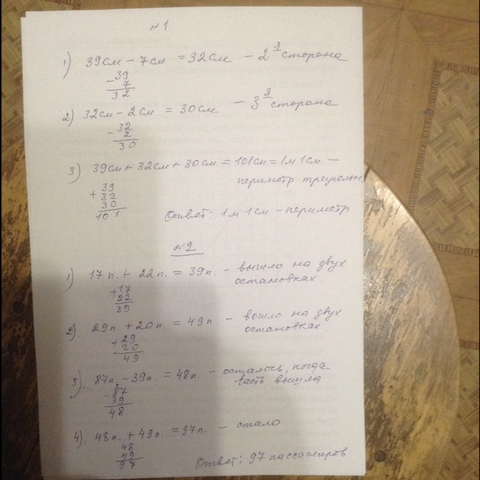 №1
1) 39см – 7см = 32см – 2я сторона
– 39
7
32
2) 32см – 2см = 30см – 3я сторона
– 32
2
30
3) 39см + 32см + 30см = 101см = 1м 1см –
периметр треугольн
+ 39
32
30
101
Ответ: 1м 1см – периметр
№2
1) 17п. + 22п. = 39п. – вышло на двух
остановках
+ 17
22
39
2). 29п. + 20п. = 49п – вошло на двух
остановках
+ 29
20
49
3). 87п. – 39п. = 48п. – осталось, когда
часть вышла
– 87
39
48
4). 48п. + 49п. = 97п. – стало
48
49
97
Ответ: 97 пассажиров